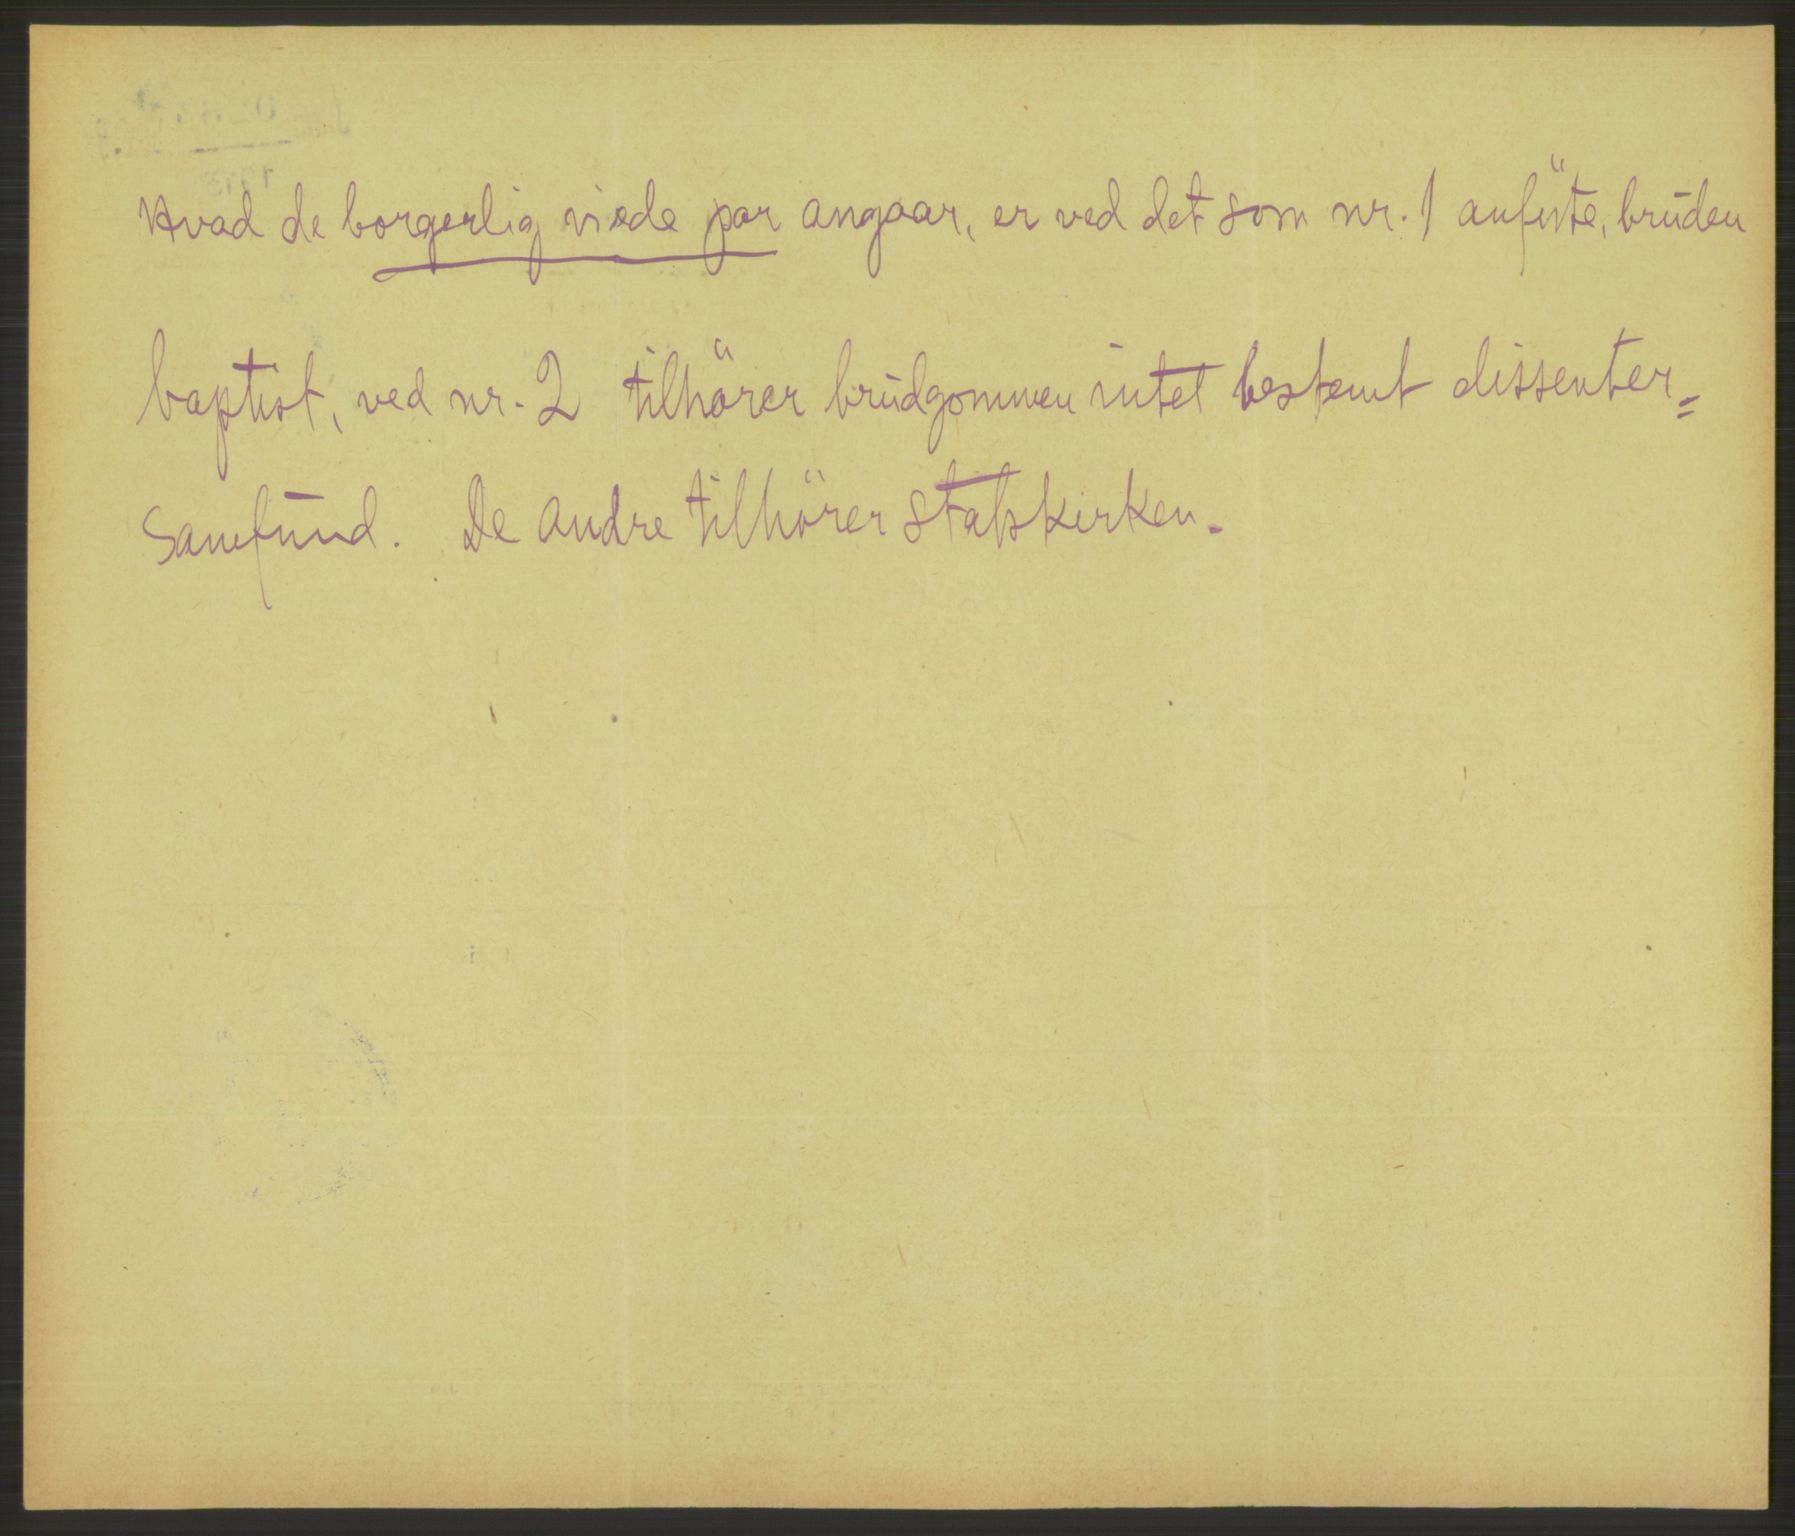 Hvad de borgerlig viede par angaar, er ved det som nr. 1 anföste, bruden
baptist, ved nr. 2 tilhörer brudgommen intet bestemt dissenter=
samfund. De andre tilhörer statskirken.